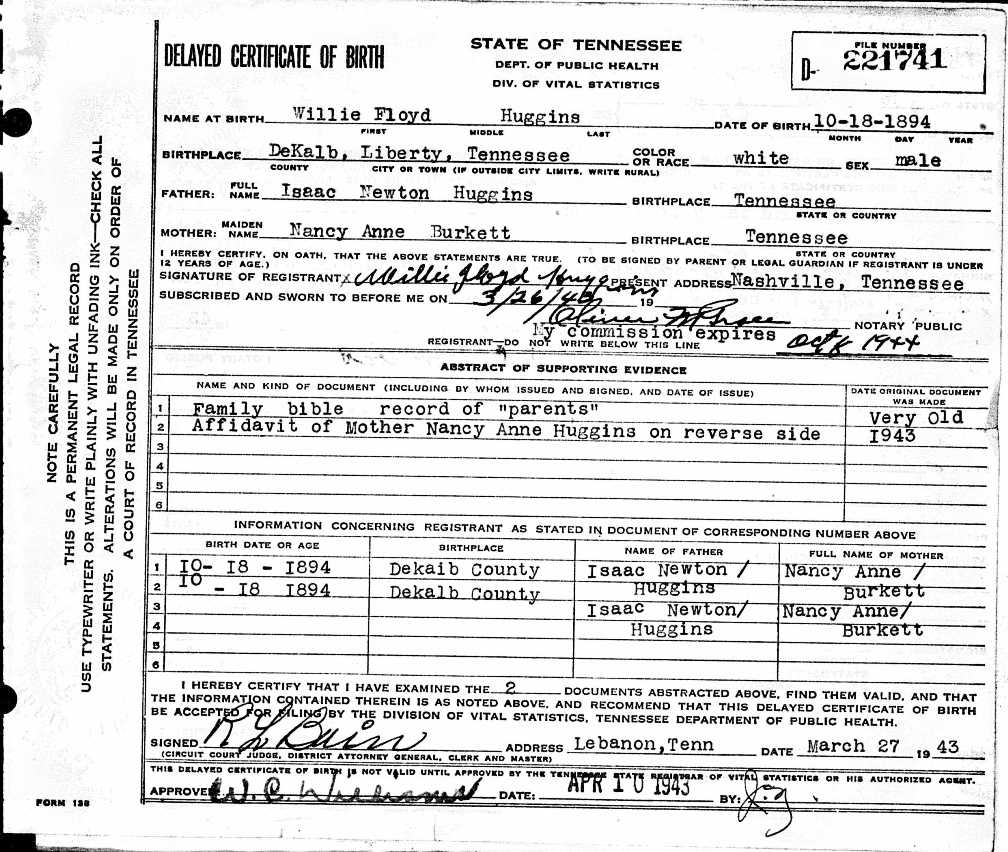 DELAYED CERTIFICATE OF BIRTH
STATE OF TENNESSEE
DEPT. OF PUBLIC HEALTH
DIV. OF VITAL STATISTICS
FILE NUMBER
D- 221741
NAME AT BIRTH Willie Floyd Huggins DATE OF BIRTH 10-18-1894
FIRST MIDDLE LAST MONTH DAY YEAR
BIRTHPLACE DeKalb, Liberty, Tennessee COLOR OR RACE white SEX male
COUNTY CITY OR TOWN (IF OUTSIDE CITY LIMITS, WRITE RURAL)
FATHER: FULL NAME Isaac Newton Huggins BIRTHPLACE Tennessee
STATE OR COUNTRY
MOTHER: MAIDEN NAME Nancy Anne Burkett BIRTHPLACE Tennessee
STATE OR COUNTRY
I HEREBY CERTIFY, ON OATH, THAT THE ABOVE STATEMENTS ARE TRUE. (TO BE SIGNED BY PARENT OR LEGAL GUARDIAN IF REGISTRANT IS UNDER
12 YEARS OF AGE.)
SIGNATURE OF REGISTRANT x Willie Floyd Huggins PRESENT ADDRESS Nashville, Tennessee
SUBSCRIBED AND SWORN TO BEFORE ME ON 3/26/43 19
NOTARY PUBLIC
My commission expires Oct 8 1944
REGISTRANT—DO NOT WRITE BELOW THIS LINE
ABSTRACT OF SUPPORTING EVIDENCE
NAME AND KIND OF DOCUMENT (INCLUDING BY WHOM ISSUED AND SIGNED, AND DATE OF ISSUE) DATE ORIGINAL DOCUMENT WAS MADE
1 Family bible record of "parents" Very Old
2 Affidavit of Mother Nancy Anne Huggins on reverse side 1943
3
4
5
6
INFORMATION CONCERNING REGISTRANT AS STATED IN DOCUMENT OF CORRESPONDING NUMBER ABOVE
BIRTH DATE OR AGE BIRTHPLACE NAME OF FATHER FULL NAME OF MOTHER
1 10- 18 - 1894 Dekaib County Isaac Newton / Nancy Anne /
2 10 - 18 1894 Dekalb County Huggins Burkett
3 Isaac Newton/ Nancy Anne/
4 Huggins Burkett
5
6
I HEREBY CERTIFY THAT I HAVE EXAMINED THE 2 DOCUMENTS ABSTRACTED ABOVE, FIND THEM VALID, AND THAT
THE INFORMATION CONTAINED THEREIN IS AS NOTED ABOVE, AND RECOMMEND THAT THIS DELAYED CERTIFICATE OF BIRTH
BE ACCEPTED FOR FILING BY THE DIVISION OF VITAL STATISTICS, TENNESSEE DEPARTMENT OF PUBLIC HEALTH.
SIGNED ADDRESS Lebanon, Tenn DATE March 27, 1943
(CIRCUIT COURT JUDGE, DISTRICT ATTORNEY GENERAL, CLERK AND MASTER)
THIS DELAYED CERTIFICATE OF BIRTH IS NOT VALID UNTIL APPROVED BY THE TENNESSEE STATE REGISTRAR OF VITAL STATISTICS OR HIS AUTHORIZED AGENT.
APPROVED W. C. Williams DATE: APR 10 1943 BY:
FORM 138
NOTE CAREFULLY
THIS IS A PERMANENT LEGAL RECORD
USE TYPEWRITER OR WRITE PLAINLY WITH UNFADING INK—CHECK ALL
STATEMENTS. ALTERATIONS WILL BE MADE ONLY ON ORDER OF
A COURT OF RECORD IN TENNESSEE